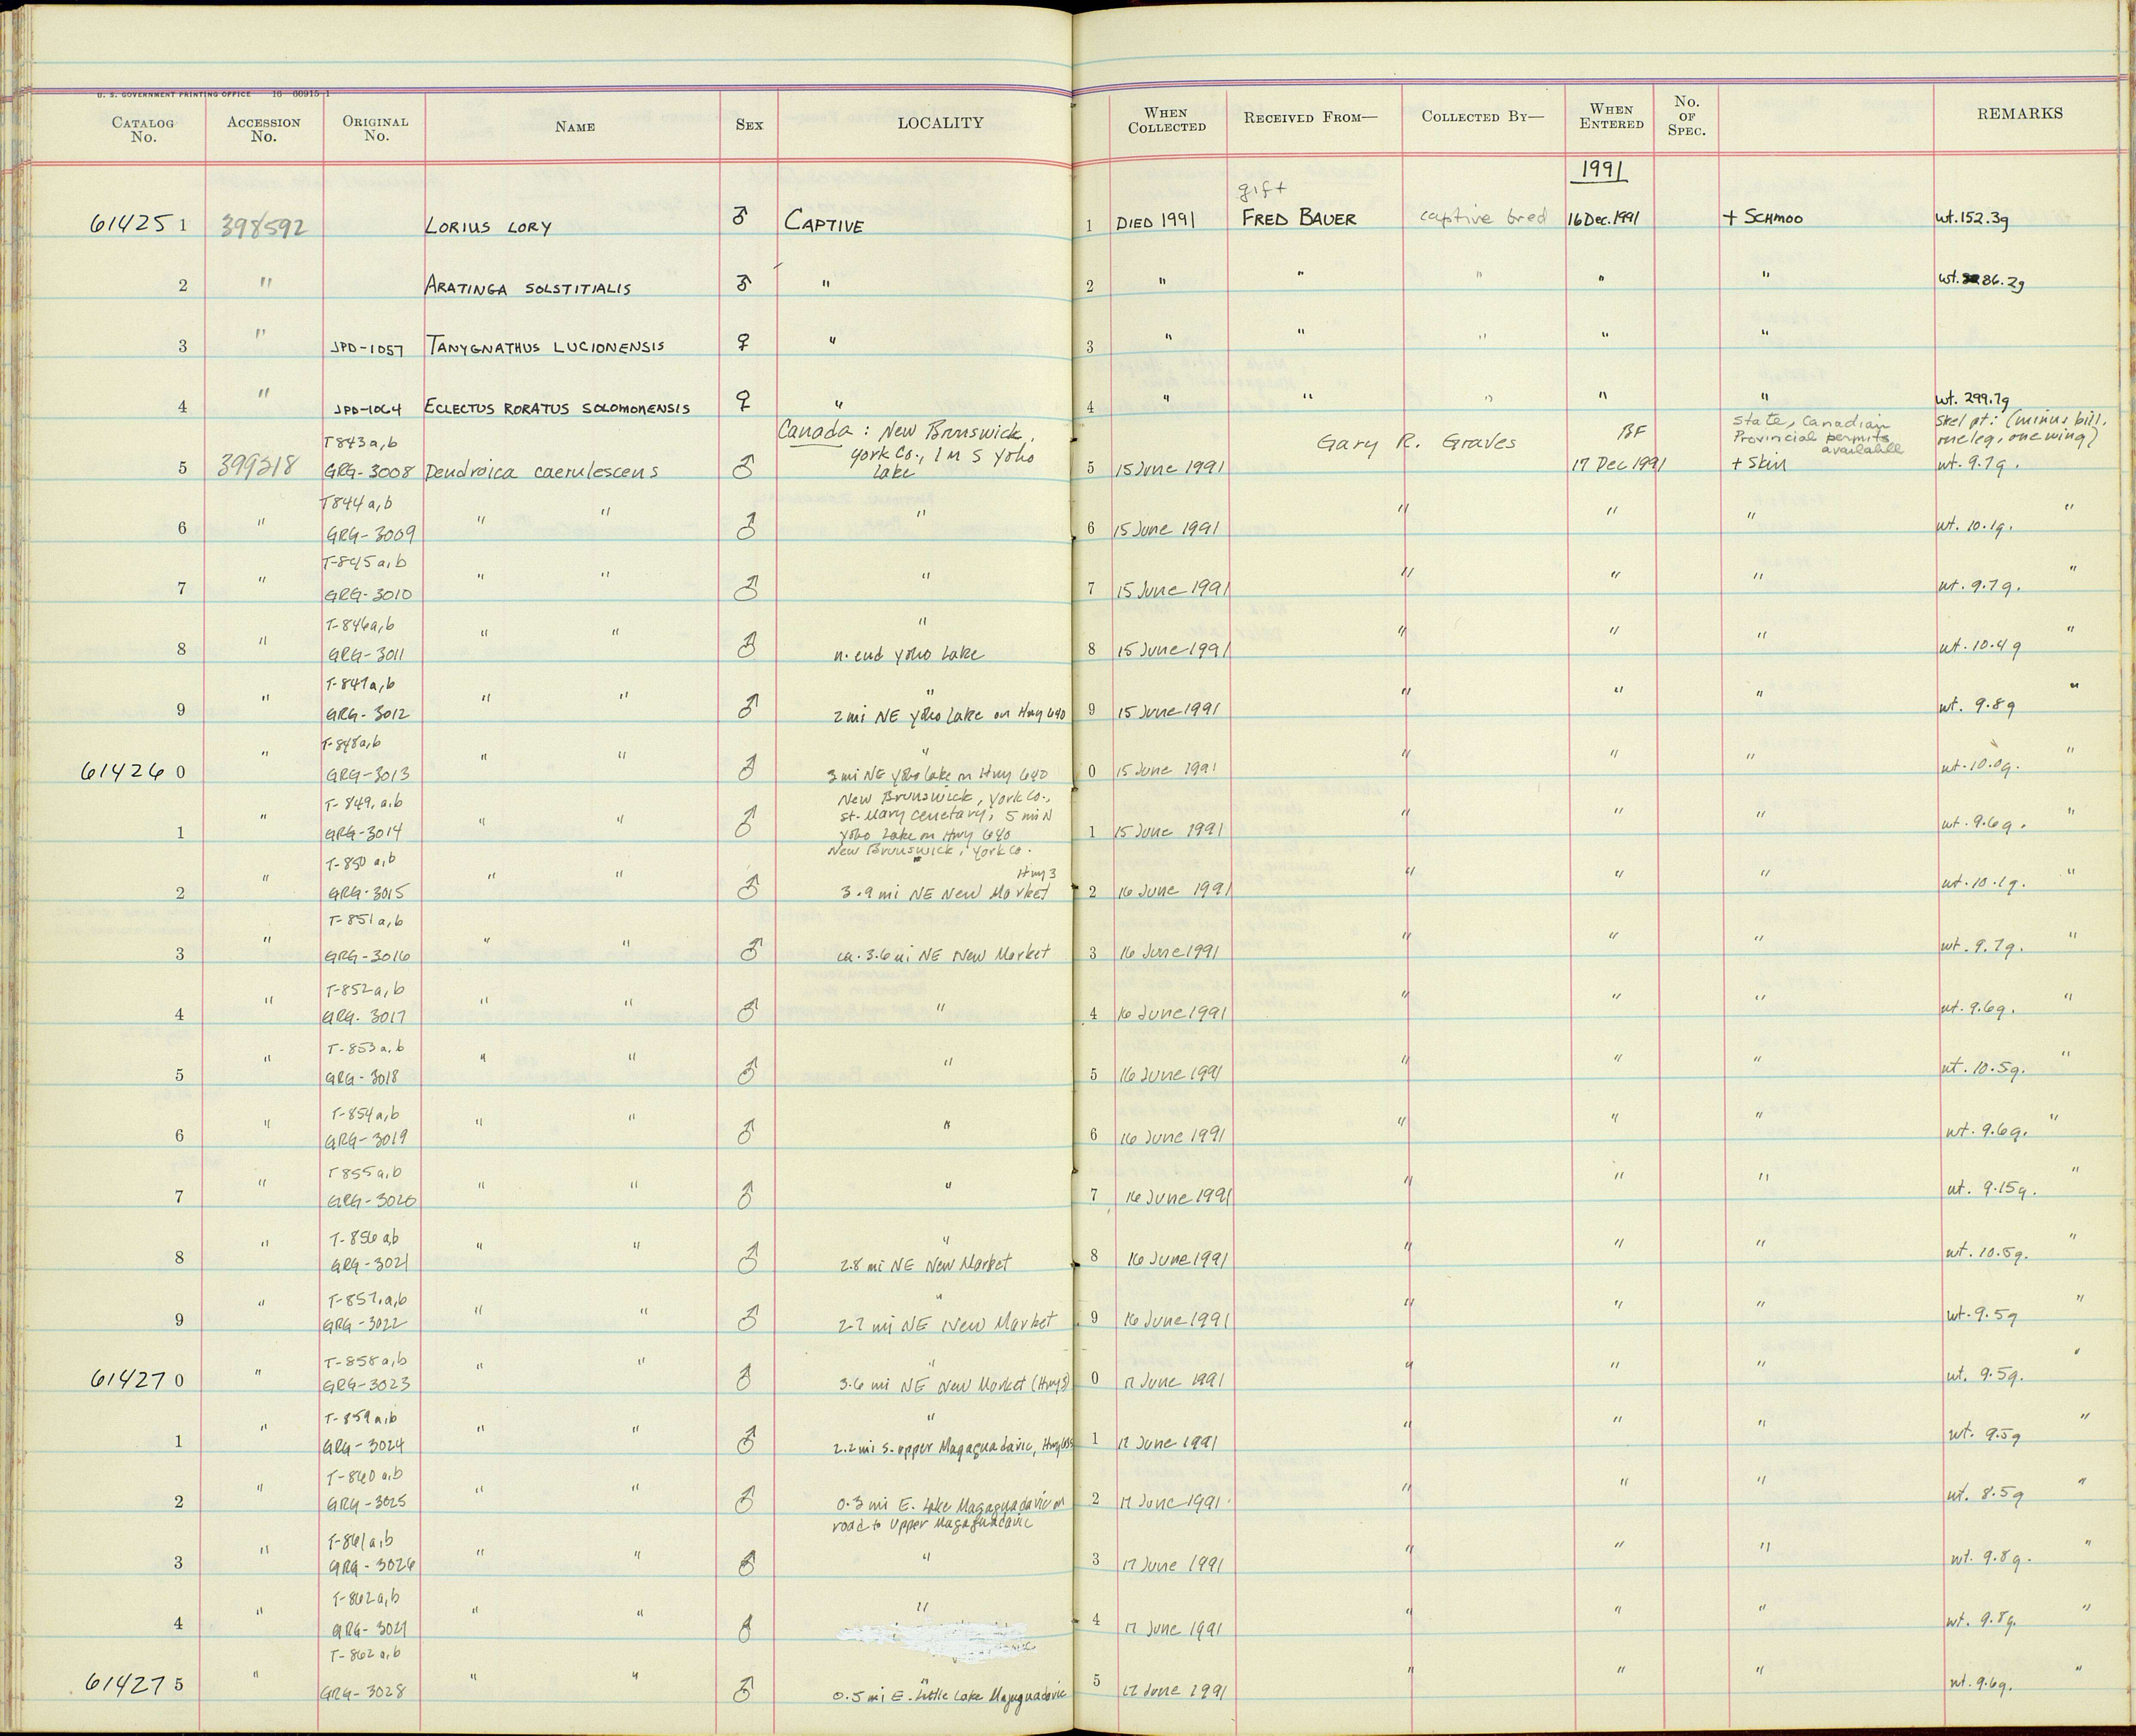 U. S. GOVERNMENT PRINTING OFFICE 16—60915-1
CATALOG No. ACCESSION No. ORIGINAL No. NAME SEX LOCALITY WHEN COLLECTED RECEIVED FROM— COLLECTED BY— WHEN ENTERED No. OF SPEC. REMARKS
1991
gift
614251 398592 LORIUS LORY ♂ CAPTIVE 1 DIED 1991 FRED BAUER captive bred 16 Dec. 1991 + SCHMOO wt. 152.3g
2 " ARATINGA SOLSTITIALIS ♂ " 2 " " " " " wt. 86.2g
3 " JPD-1057 TANYGNATHUS LUCIONENSIS ♀ " 3 " " " " "
4 " JPD-1064 ECLECTUS RORATUS SOLOMONENSIS ♀ " 4 " " " " " wt. 299.7g
T843a,b Canada: New Brunswick, Gary R. Graves BF State, Canadian Skel pt: (minus bill,
York Co., 1 m S Yoho Provincial permits one leg, one wing)
available
5 399218 GRG-3008 Dendroica caerulescens ♂ Lake 5 15 June 1991 17 Dec 1991 + Skin wt. 9.7g.
T844a,b
6 " GRG-3009 " " ♂ " 6 15 June 1991 " " " wt. 10.1g. "
T-845a,b
7 " GRG-3010 " " ♂ " 7 15 June 1991 " " " wt. 9.7g. "
T-846a,b "
8 " GRG-3011 " " ♂ n. end Yoho Lake 8 15 June 1991 " " " wt. 10.4g "
T-847a,b "
9 " GRG-3012 " " ♂ 2 mi NE Yoho Lake on Hwy 640 9 15 June 1991 " " " wt. 9.8g "
T-848a,b "
614260 " GRG-3013 " " ♂ 3 mi NE Yoho Lake on Hwy 640 0 15 June 1991 " " " wt. 10.0g. "
T-849,a,b New Brunswick, York Co.,
St. Mary Cemetary, 5 mi N
1 " GRG-3014 " " ♂ Yoho Lake on Hwy 640 1 15 June 1991 " " " wt. 9.6g. "
New Brunswick, York Co.
T-850 a,b Hwy 3
2 " GRG-3015 " " ♂ 3.9 mi NE New Market 2 16 June 1991 " " " wt. 10.1g. "
T-851a,b
3 " GRG-3016 " " ♂ ca. 3.6 mi NE New Market 3 16 June 1991 " " " wt. 9.7g. "
T-852a,b
4 " GRG-3017 " " ♂ " 4 16 June 1991 " " " wt. 9.6g. "
T-853a,b
5 " GRG-3018 " " ♂ " 5 16 June 1991 " " " wt. 10.5g. "
T-854a,b
6 " GRG-3019 " " ♂ " 6 16 June 1991 " " " wt. 9.6g. "
T855a,b
7 " GRG-3020 " " ♂ " 7 16 June 1991 " " " wt. 9.15g. "
T-856a,b "
8 " GRG-3021 " " ♂ 2.8 mi NE New Market 8 16 June 1991 " " " wt. 10.5g. "
T-857,a,b "
9 " GRG-3022 " " ♂ 2.7 mi NE New Market 9 16 June 1991 " " " wt. 9.5g "
T-858a,b "
614270 " GRG-3023 " " ♂ 3.6 mi NE New Market (Hwy 3) 0 17 June 1991 " " " wt. 9.5g. "
T-859a,b "
1 " GRG-3024 " " ♂ 2.2 mi S. upper Magaguadavic, 1 17 June 1991 " " " wt. 9.5g "
T-860a,b
2 " GRG-3025 " " ♂ 0.3 mi E. Lake Magaguadavic on 2 17 June 1991 " " " wt. 8.5g "
road to Upper Magaguadavic
T-861a,b
3 " GRG-3026 " " ♂ " 3 17 June 1991 " " " wt. 9.8g. "
T-862a,b
4 " GRG-3027 " " ♂ " 4 17 June 1991 " " " wt. 9.8g. "
T-862a,b "
614275 " GRG-3028 " " ♂ 0.5 mi E. Little Lake Magaguadavic 5 17 June 1991 " " " wt. 9.6g. "